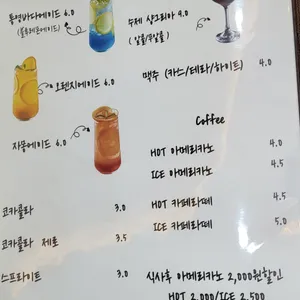 통영바다에이드 6.0
(블루레몬에이드)
수제 샹그리아 9.0
(알콜/무알콜)
오렌지에이드 6.0
맥주 (카스/테라/하이트) 4.0
자몽에이드 6.0
Coffee
HOT 아메리카노 4.0
ICE 아메리카노 4.5
코카콜라 3.0
HOT 카페라떼 4.5
ICE 카페라떼 5.0
코카콜라 제로 3.5
스프라이트 3.0
식사후 아메리카노 2,000원할인
HOT 2,000/ICE 2,500